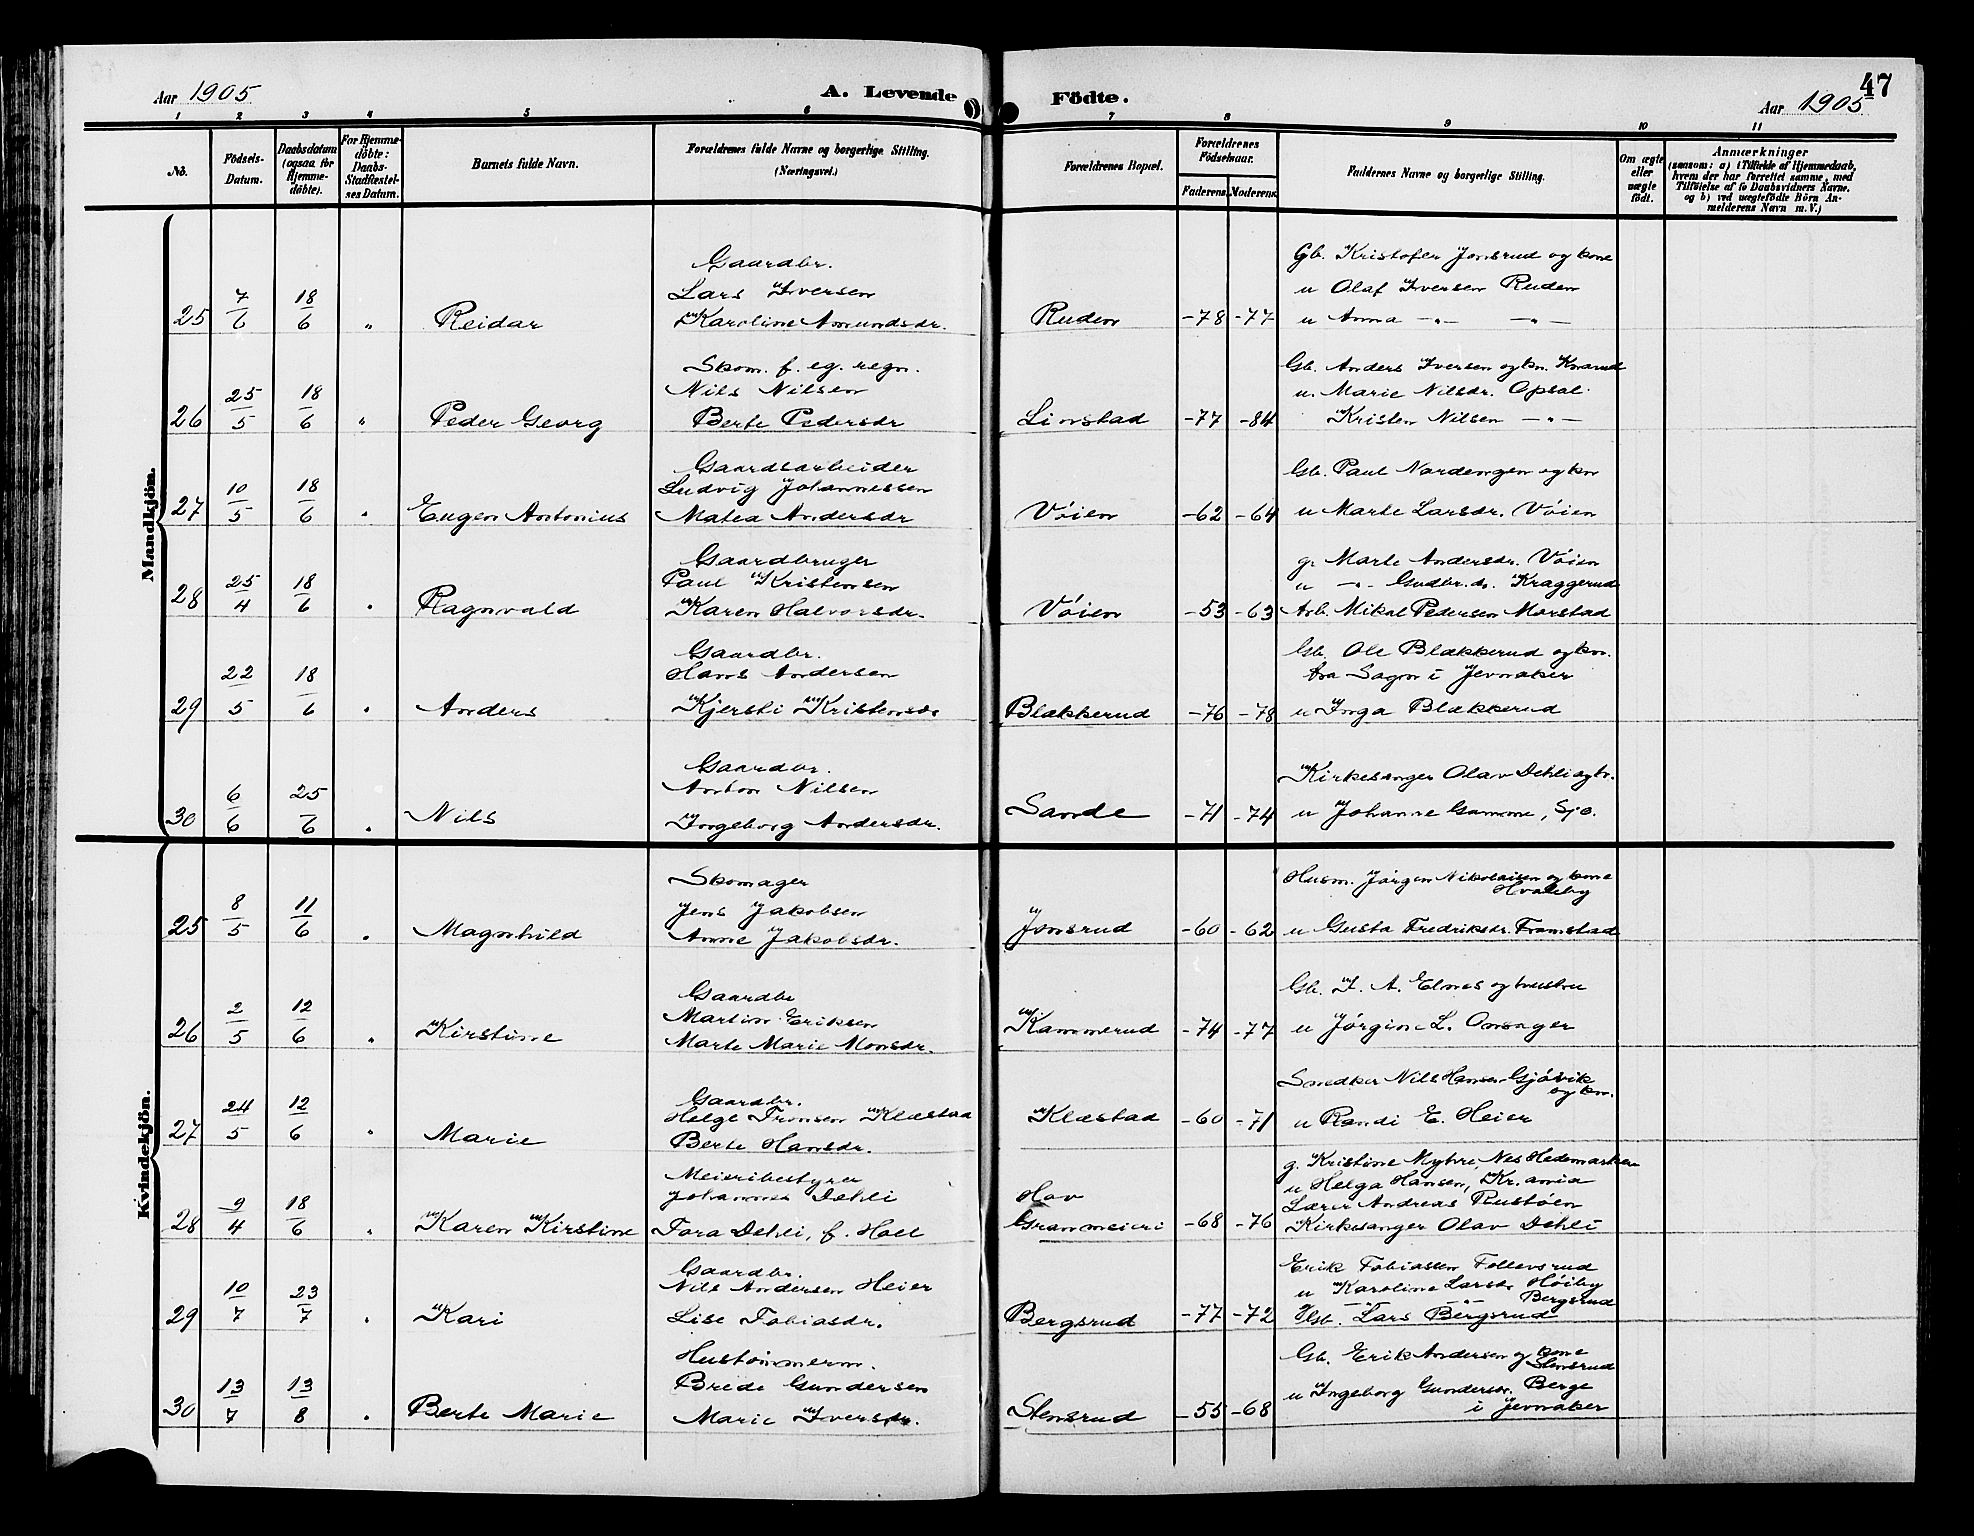 Aar 1905. A. Levende Födte. Aar 1905 47
1 2 3 4 5 6 7 8 9 10 11
No. Födsels-Datum. Daabsdatum (ogsaa for Hjemme-döbte). For Hjemme-döbte: Daabs-Stadfæstel-ses Datum. Barnets fulde Navn. Forældrenes fulde Navne og borgerlige Stilling. (Næringsvei.) Forældrenes Bopæl. Forældrenes Födselsaar. Faderens Moderens Faddernes Navne og borgerlige Stilling. Om ægte eller uægte födt. Anmærkninger (saasom: a) i Tilfælde af Hjemmedaab, hvem der har forrettet samme, med Tilföielse af to Daabsvidners Navne. og b) ved uægtefödte Börn An-melderens Navn m. V.)
Mandkjön.
Gaardbr. Gb. Kristofer Jonsrud og kone
Lars Iversen u Olaf Iversen Ruden
25 7/6 18/6 " Reidar Karoline Amundsdr. Ruden -78 -77 u Anna -"- -"-
Skom. f. eg. regn. Gb. Anders Iversen og kn. Knarud
Nils Nilsen u. Marie Nilsdr. Opsal
26 25/5 18/6 " Peder Georg Berte Pedersdr Linstad -77 -84 Kristen Nilsen -"-
Gaardsarbeider Gb. Paul Nordengen og kn
Ludvig Johannessen
27 10/5 18/6 " Eugen Antonius Matea Andersdr Vöien -62 -64 u Marte Larsdr. Vöien
Gaardbruger g. Marte Andersdr. Vöien
Paul Kristensen u -"- Gudbr.d. Kraggerud
28 25/4 18/6 " Ragnvald Karen Halvorsdr. Vöien -53 -63 Arb. Mikal Pedersen Morstad
Gaardbr. Gb. Ole Blækkerud og kn.
Hans Andersen fra Sogn i Jevnaker
29 22/5 18/6 " Anders Kjersti Kristensdr Blækkerud -76 -78 u Inga Blækkerud
Gaardbr. Kirkesanger Olav Dehli og fr.
Anton Nilsen
30 6/6 25/6 " Nils Ingeborg Andersdr. Sande -71 -74 u Johanne Gamme, Sjo.
Kvindekjön.
Skomager Husm. Jörgen Nikolaisen og kone
Jens Jakobsen Hvaleby
25 8/5 11/6 " Magnhild Anne Jakobsdr. Jonsrud -60 -62 u Gusta Fredriksdr. Framstad
Gaardbr Gb. I. A. Elnes og hustru
Martin Eriksen
26 2/5 12/6 " Kirstine Marte Marie Monsdr. Kammerud -74 -77 u Jörgine L. Onsager
Gaardbr. Snedker Nils Hansen Gjövik
Helge Tronsen Klæstad og kn.
27 24/5 12/6 " Marie Berte Hansdr. Klæstad -60 -71 u Randi E. Heier
Meieribestyrer g. Kristine Myhre, Nes Hedemarken
Johannes Dehli Hov u Helga Hansen, Kr.ania
Lærer Andreas Rustöen
28 9/4 18/6 " Karen Kirstine Tora Dehli, f. Holl Granmeieri -68 -76 Kirkesanger Olav Dehli
Gaardbr. Erik Tobiassen Tollevsrud
Nils Andersen Heier u Karoline Larsdr Höiby
-"- Bergsrud
29 10/7 23/7 " Kari Lise Tobiasdr. Bergsrud -77 -72 Gb. Lars Bergsrud
Hustömmerm. Gb. Erik Andersen og kone
Stensrud
Brede Gundersen u Ingeborg Gundersdr. Berge
30 13/7 13/8 " Berte Marie Marie Iversdr. Stensrud -55 -68 i Jevnaker